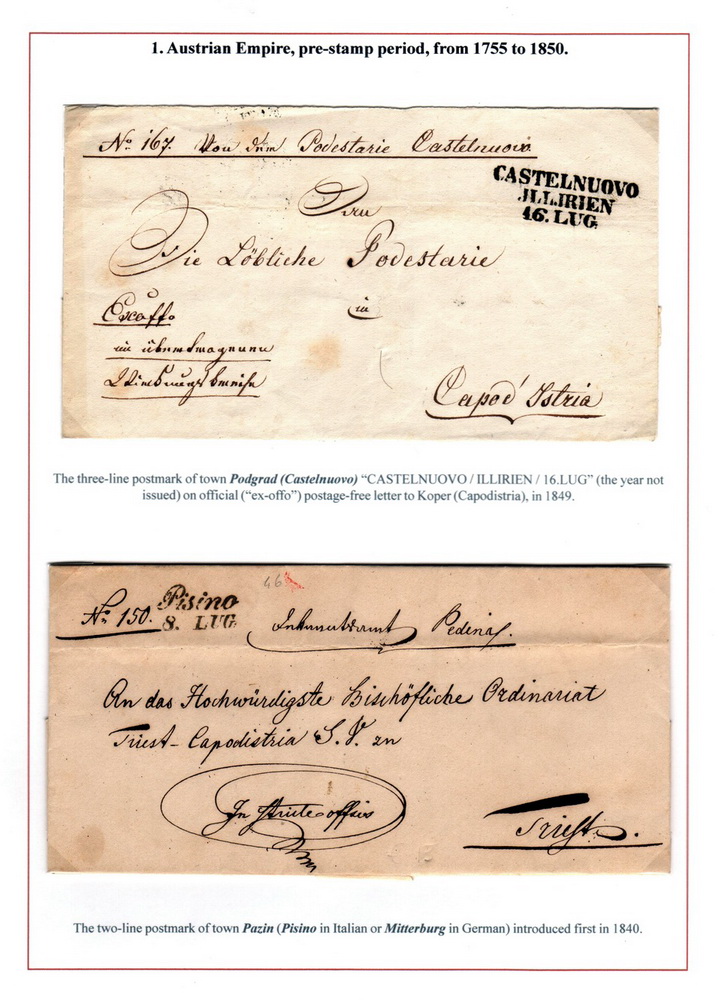 1. Austrian Empire, pre-stamp period, from 1755 to 1850.
No 167. Von dem Podestarie Castelnuovo
CASTELNUOVO
ILLIRIEN
16. LUG
Die Löbliche Podestarie
Exoffo
in
Capod' Istria
The three-line postmark of town Podgrad (Castelnuovo) “CASTELNUOVO / ILLIRIEN / 16.LUG” (the year not
issued) on official (“ex-offo”) postage-free letter to Koper (Capodistria), in 1849.
46
Pisino
8. LUG
No 150.
Pedena
An das Hochwürdigste Bischöfliche Ordinariat
Triest-Capodistria S. V. zu
In
Triest.
The two-line postmark of town Pazin (Pisino in Italian or Mitterburg in German) introduced first in 1840.